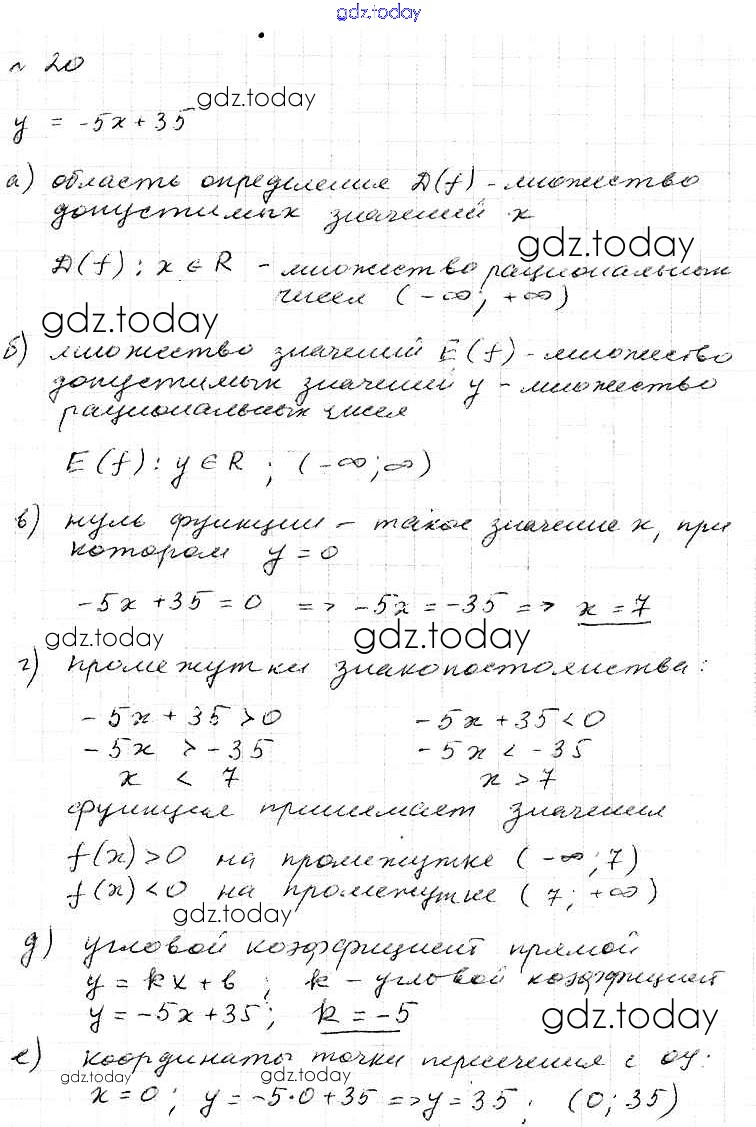 gdz.today
№ 20
gdz.today
y = -5x + 35
а) область определения D(f) - множество
допустимых значений x
gdz.today
D(f): x ∈ R - множество рациональных
чисел (-∞; +∞)
gdz.today
б) множество значений E(f) - множество
допустимых значений y - множество
рациональных чисел
E(f): y ∈ R ; (-∞; ∞)
в) нуль функции - такое значение x, при
котором y = 0
-5x + 35 = 0 => -5x = -35 => x = 7
gdz.today gdz.today
г) промежутки знакопостоянства:
-5x + 35 > 0 -5x + 35 < 0
-5x > -35 -5x < -35
x < 7 x > 7
функция принимает значения
f(x) > 0 на промежутке (-∞; 7)
f(x) < 0 на промежутке (7; +∞)
gdz.today
д) угловой коэффициент прямой
y = kx + b ; k - угловой коэффициент
y = -5x + 35; k = -5
gdz.today
е) координаты точки пересечения с oy:
gdz.today gdz.today
x = 0 ; y = -5·0 + 35 => y = 35 ; (0; 35)